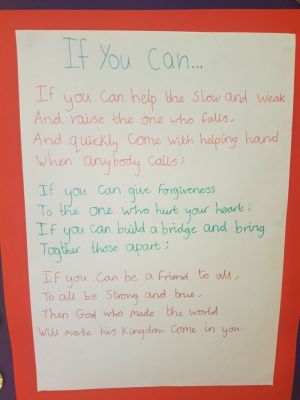 If You Can...
If you can help the slow and weak
And raise the one who falls,
And quickly come with helping hand
When anybody calls;
If you can give forgiveness
To the one who hurt your heart;
If you can build a bridge and bring
Togther those apart;
If you can be a friend to all,
To all be strong and true,
Then God who made the world
Will make his kingdom come in you.